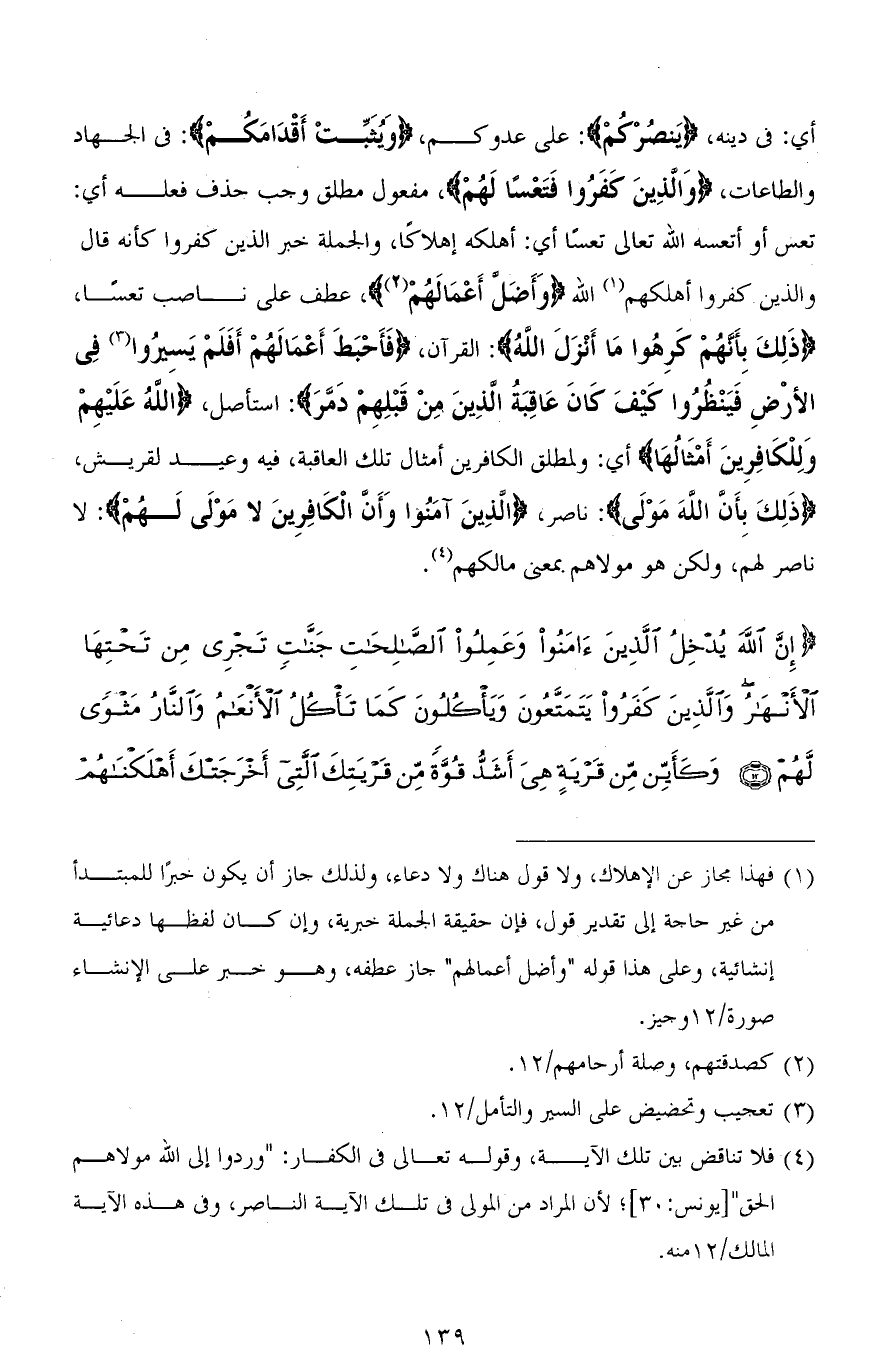 أي: فى دينه، ﴿يَنصُرْكُمْ﴾: على عدوكـــم، ﴿وَيُثَبِّــتْ أَقْدَامَكُــمْ﴾: فى الجـــهاد
والطاعات، ﴿وَالَّذِينَ كَفَرُوا فَتَعْسًا لَهُمْ﴾، مفعول مطلق وجب حذف فعلـــه أي:
تعس أو أتعسه الله تعالى تعسًا أي: أهلكه إهلاكًا، والجملة خبر الذين كفروا كأنه قال
والذين كفروا أهلكهم(١) الله ﴿وَأَضَلَّ أَعْمَالَهُمْ(٢)﴾، عطف على نـــاصب تعسًــا،
﴿ذَلِكَ بِأَنَّهُمْ كَرِهُوا مَا أَنْزَلَ اللَّهُ﴾: القرآن، ﴿فَأَحْبَطَ أَعْمَالَهُمْ أَفَلَمْ يَسِيرُوا(٣) فِى
الأَرْضِ فَيَنْظُرُوا كَيْفَ كَانَ عَاقِبَةُ الَّذِينَ مِنْ قَبْلِهِمْ دَمَّرَ﴾: استأصل، ﴿اللَّهُ عَلَيْهِمْ
وَلِلْكَافِرِينَ أَمْثَالُهَا﴾ أي: ولمطلق الكافرين أمثال تلك العاقبة، فيه وعيـــد لقريـش،
﴿ذَلِكَ بِأَنَّ اللَّهَ مَوْلَى﴾: ناصر، ﴿الَّذِينَ آمَنُوا وَأَنَّ الْكَافِرِينَ لا مَوْلَى لَــهُمْ﴾: لا
ناصر لهم، ولكن هو مولاهم بمعنى مالكهم(٤).
﴿إِنَّ ٱللَّهَ يُدۡخِلُ ٱلَّذِينَ ءَامَنُواْ وَعَمِلُواْ ٱلصَّٰلِحَٰتِ جَنَّٰتٍ تَجۡرِى مِن تَحۡتِهَا
ٱلۡأَنۡهَٰرُۖ وَٱلَّذِينَ كَفَرُواْ يَتَمَتَّعُونَ وَيَأۡكُلُونَ كَمَا تَأۡكُلُ ٱلۡأَنۡعَٰمُ وَٱلنَّارُ مَثۡوًى
لَّهُمۡ ۝١٢ وَكَأَيِّن مِّن قَرۡيَةٍ هِىَ أَشَدُّ قُوَّةً مِّن قَرۡيَتِكَ ٱلَّتِىٓ أَخۡرَجَتۡكَ أَهۡلَكۡنَٰهُمۡ
(١) فهذا مجاز عن الإهلاك، ولا قول هناك ولا دعاء، ولذلك جاز أن يكون خبرًا للمبتــدأ
من غير حاجة إلى تقدير قول، فإن حقيقة الجملة خبرية، وإن كــان لفظــها دعائيــة
إنشائية، وعلى هذا قوله "وأضل أعمالهم" جاز عطفه، وهــو خــبر علــى الإنشــاء
صورة/١٢وجيز.
(٢) كصدقتهم، وصلة أرحامهم/١٢.
(٣) تعجيب وتحضيض على السير والتأمل/١٢.
(٤) فلا تناقض بين تلك الآيـــة، وقولــه تعــالى فى الكفــار: "وردوا إلى الله مولاهــم
الحق"[يونس:٣٠]؛ لأن المراد من المولى فى تلــك الآيــة النــاصر، وفى هــذه الآيــة
المالك/١٢منه.
١٣٩